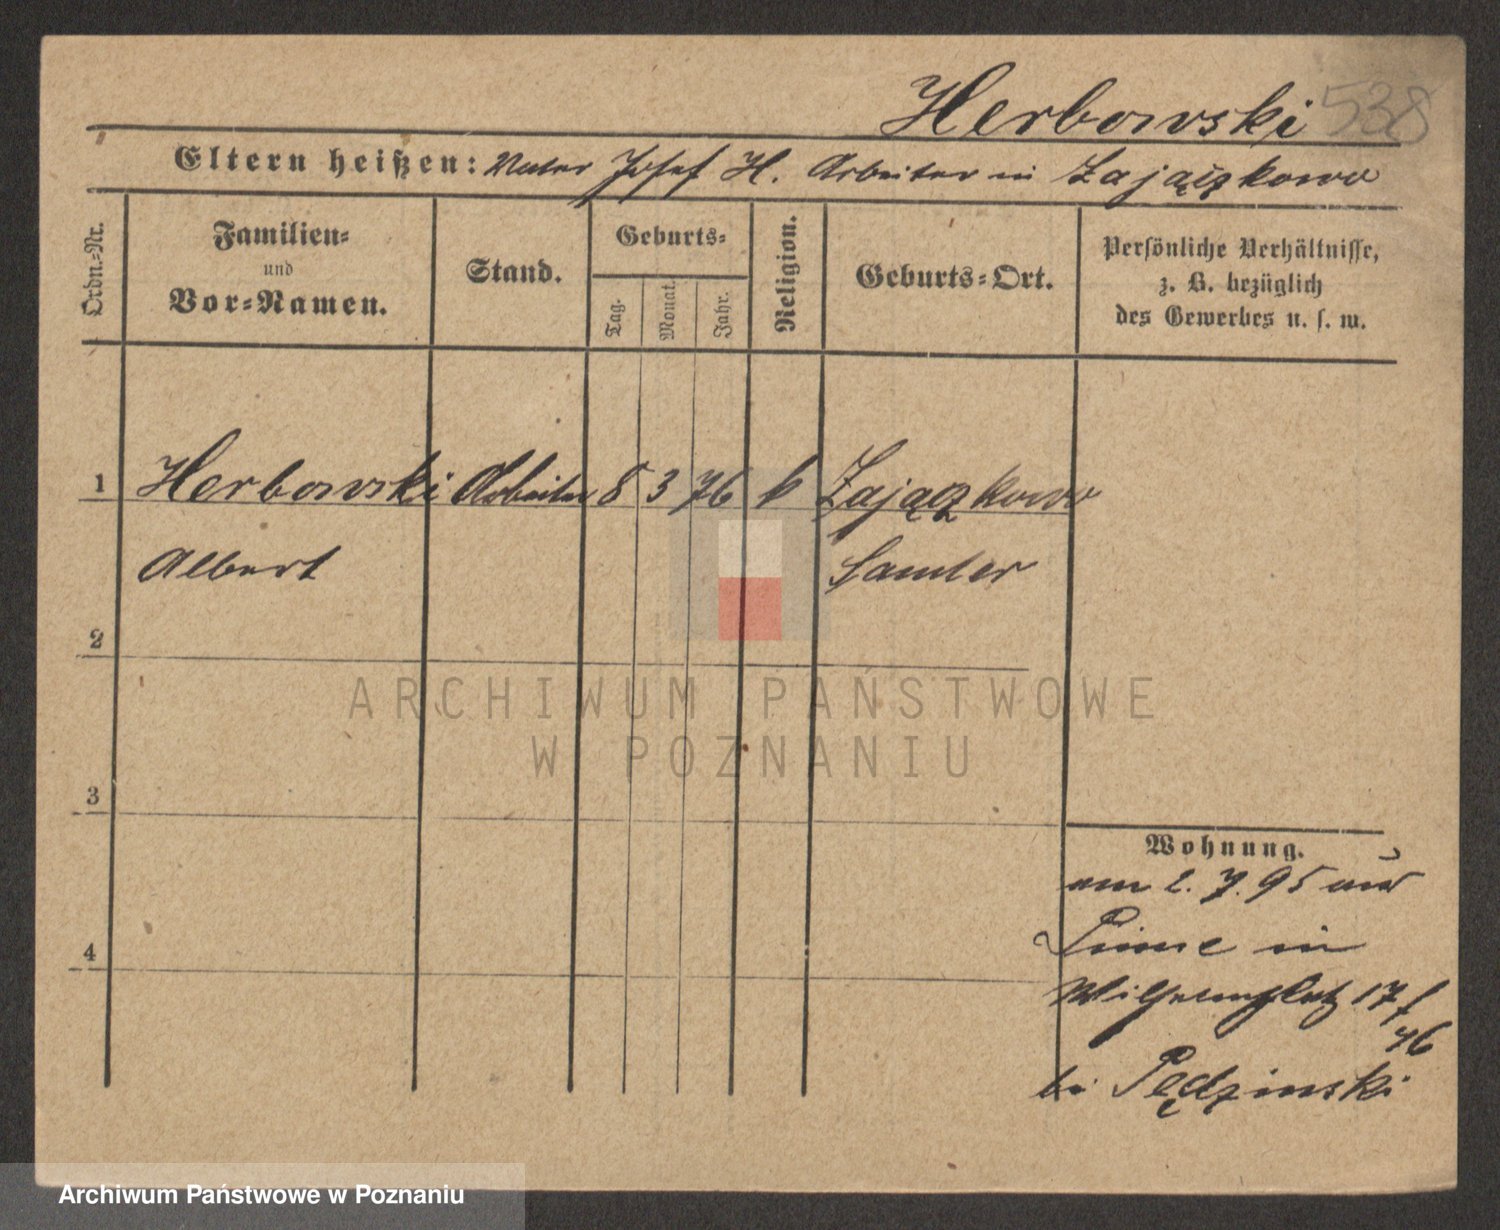 Herbowski 538
Eltern heißen: Vater Josef H. Arbeiter in Zajączkowo
Ordn.-Nr.
Familien-
und
Vor-Namen.
Stand.
Geburts-
Tag.
Monat.
Jahr.
Religion.
Geburts-Ort.
Persönliche Verhältnisse,
z. B. bezüglich
des Gewerbes u. s. w.
1 Herbowski Arbeiter 8 3 76 k Zajączkowo
Albert Samter
2
3
4
Wohnung.
am 2. 7. 95 aus
Pinne in
Wilhelmsplatz 17
46
bei Pędzinski
ARCHIWUM PAŃSTWOWE
W POZNANIU
Archiwum Państwowe w Poznaniu